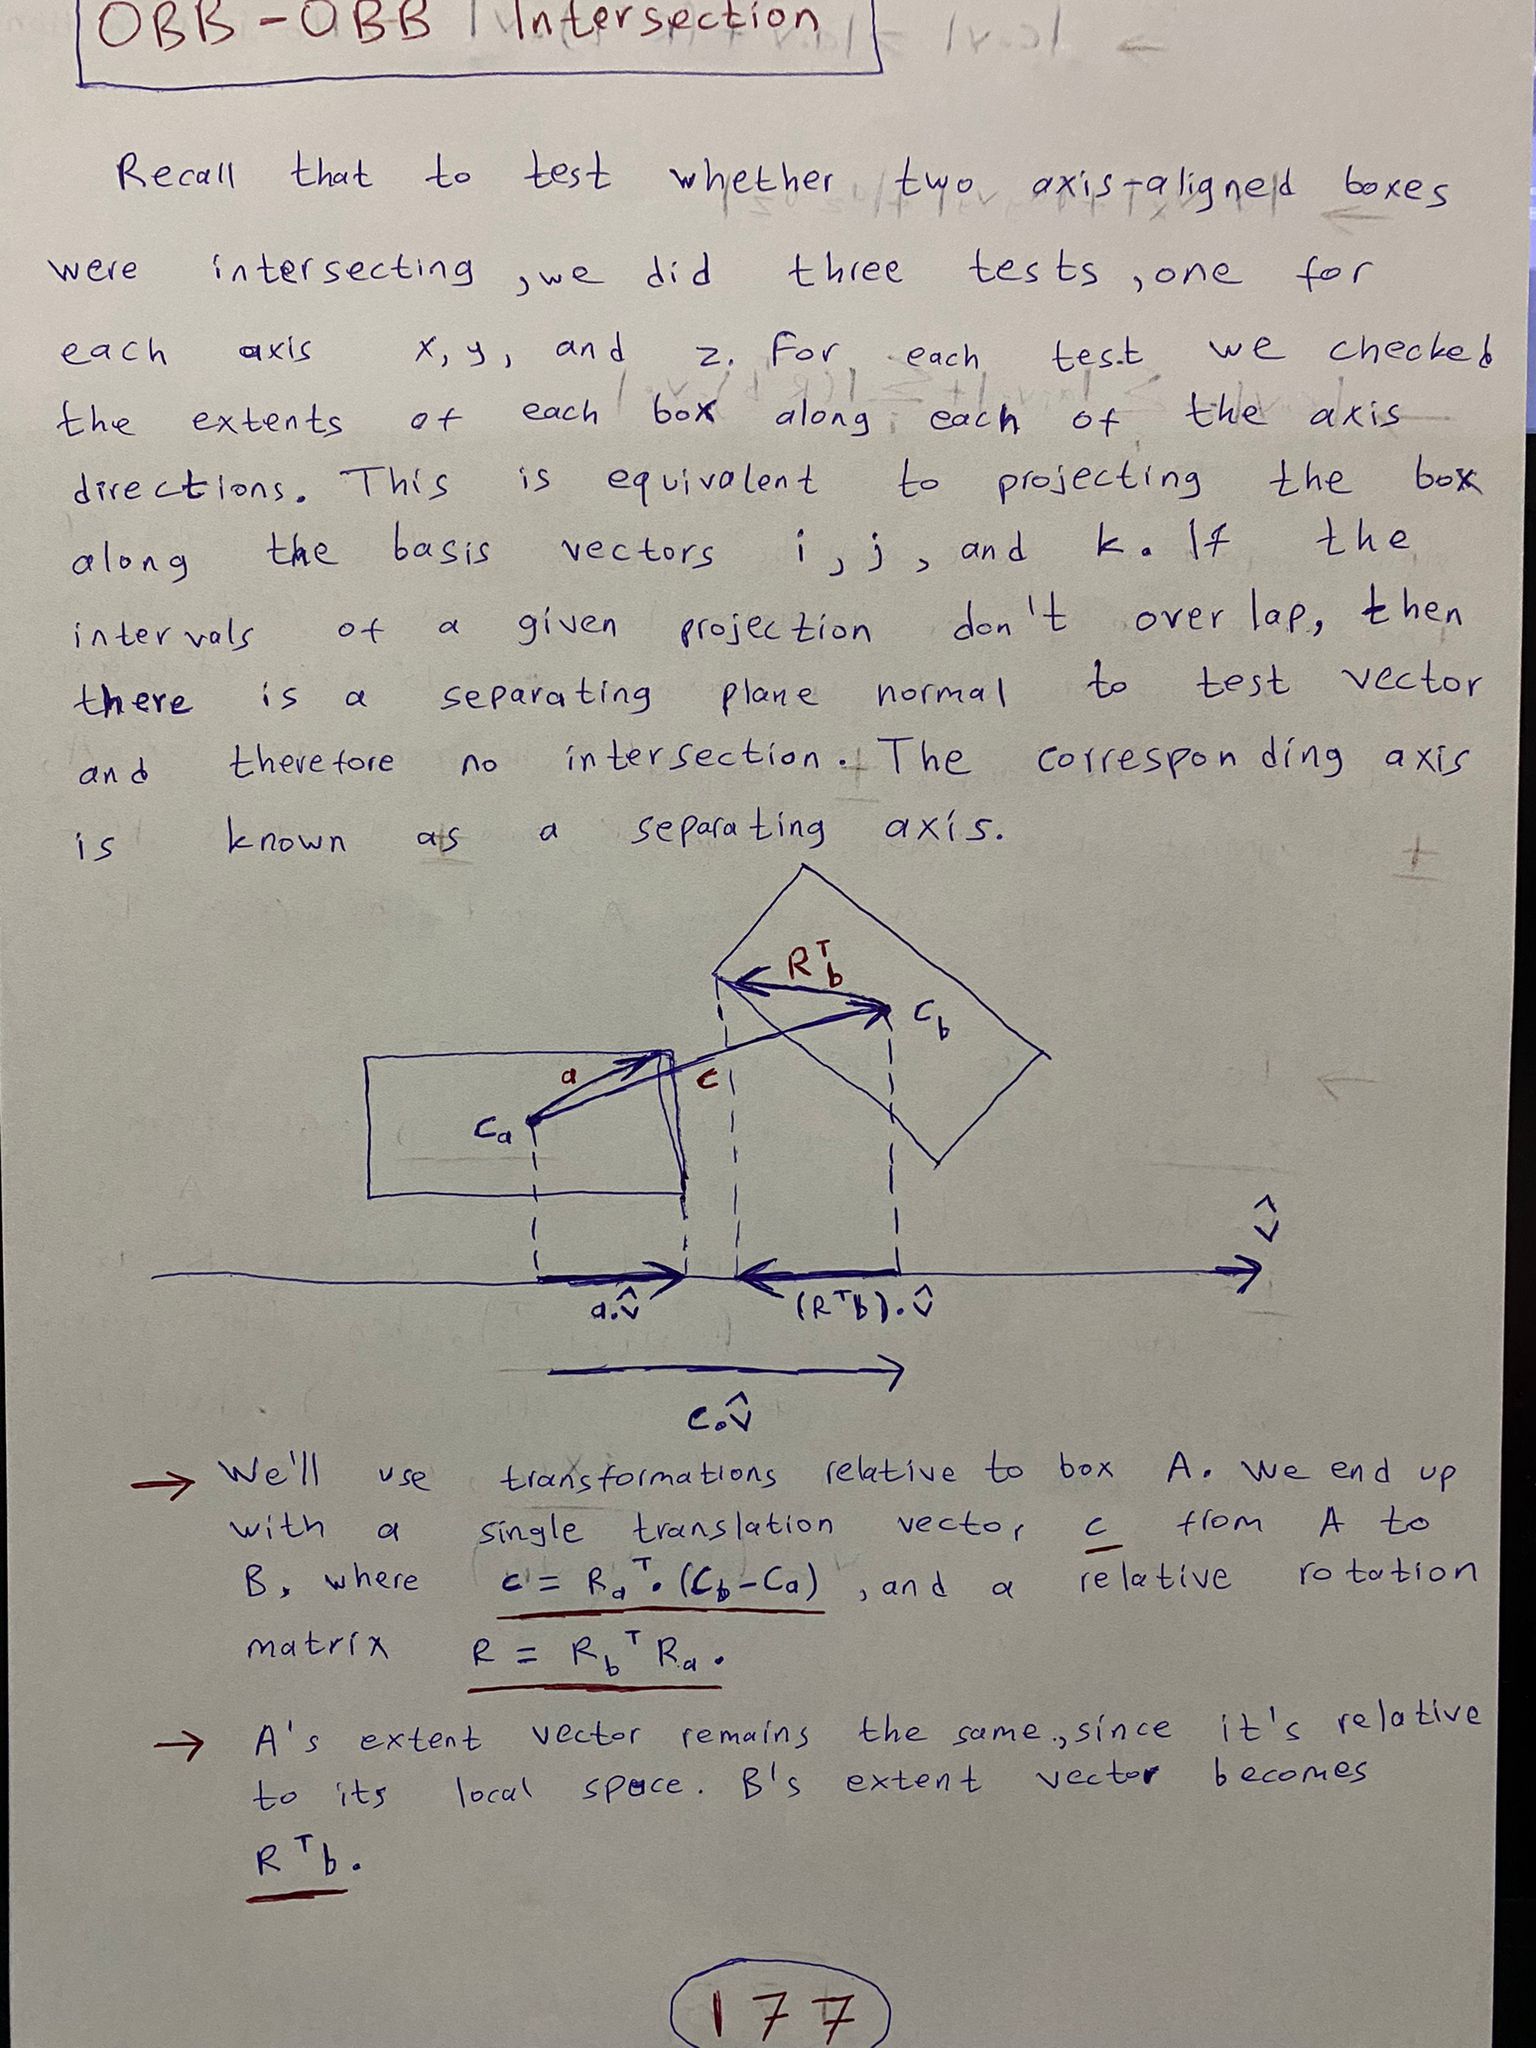 OBB - OBB Intersection
Recall that to test whether two axis-aligned boxes
were intersecting, we did three tests, one for
each axis x, y, and z. For each test we checked
the extents of each box along each of the axis
directions. This is equivalent to projecting the box
along the basis vectors i, j, and k. If the
intervals of a given projection don't overlap, then
there is a separating plane normal to test vector
and therefore no intersection. The corresponding axis
is known as a separating axis.
Rᵀb
C_b
a
c
C_a
v̂
a.v̂
(Rᵀb).v̂
c.v̂
→ We'll use transformations relative to box A. We end up
with a single translation vector c from A to
B, where c = R_aᵀ. (C_b - C_a), and a relative rotation
matrix R = R_bᵀ R_a.
→ A's extent vector remains the same, since it's relative
to its local space. B's extent vector becomes
Rᵀb.
177